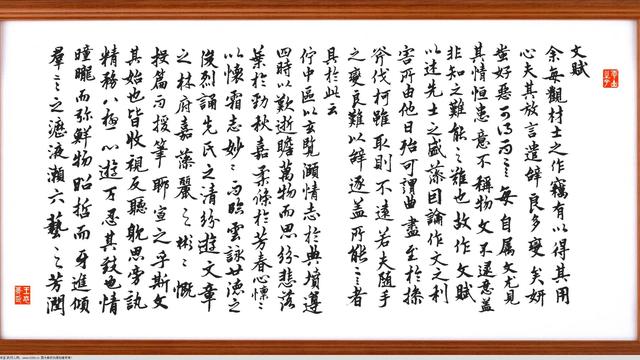 文賦
余每觀材士之作竊有以得其用
心夫其放言遣辭良多變矣妍
蚩好惡可得而言每自属文尤見
其情恒患意不稱物文不逮意蓋
非知之難能之難也故作文賦
以述先士之盛藻因論作文之利
害所由他日殆可謂曲盡至於操
斧伐柯雖取則不遠若夫隨手
之變良難以辭逐蓋所能言者
具於此云
佇中區以玄覽頤情志於典墳遵
四時以歎逝瞻萬物而思紛悲落
葉於勁秋嘉柔條於芳春心懍〻
以懷霜志妙〻而臨雲詠世德之
俊烈誦先民之清紛遊文章
之林府嘉藻麗之彬〻慨
投篇而援筆聊宣之乎斯文
其始也皆收視反聽耽思旁訊
精務八極心遊万忍其致也情
曈曨而弥鮮物昭晢而互進傾
羣言之瀝液漱六藝之芳潤